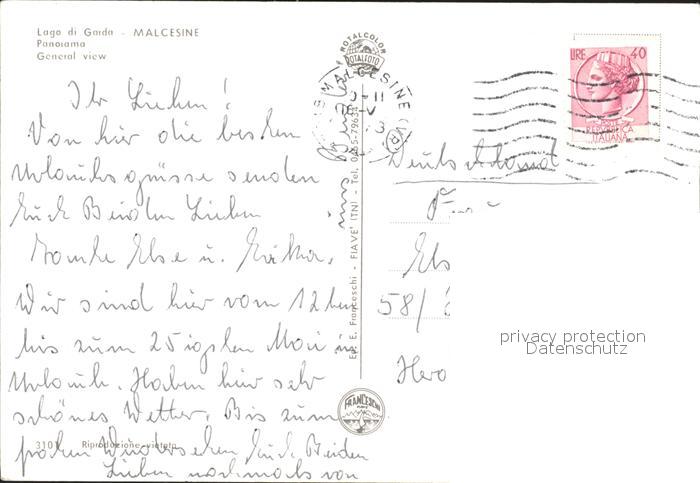 Lago di Garda - MALCESINE
Panorama
General view
Ihr Lieben!
Von hier die besten
Urlaubsgrüsse senden
Euch Beiden Lieben
Tante Else u.
Wir sind hier vom 12 ten
bis zum 25igsten Mai in
Urlaub. Haben hier sehr
schönes Wetter. Bis zum
frohen Wiedersehen Euch Beiden
Lieben nochmals von
uns
3101 Riproduzione vietata
Ed. E. Franceschi - FIAVE' (TN) - Tel. 0465-79634
ROTALCOLOR
ROTALFOTO
MALCESINE (VR)
FRANCESCHI
LIRE 40
POSTE
REPVBBLICA
ITALIANA
Deutschland
Els
58/
privacy protection
Datenschutz